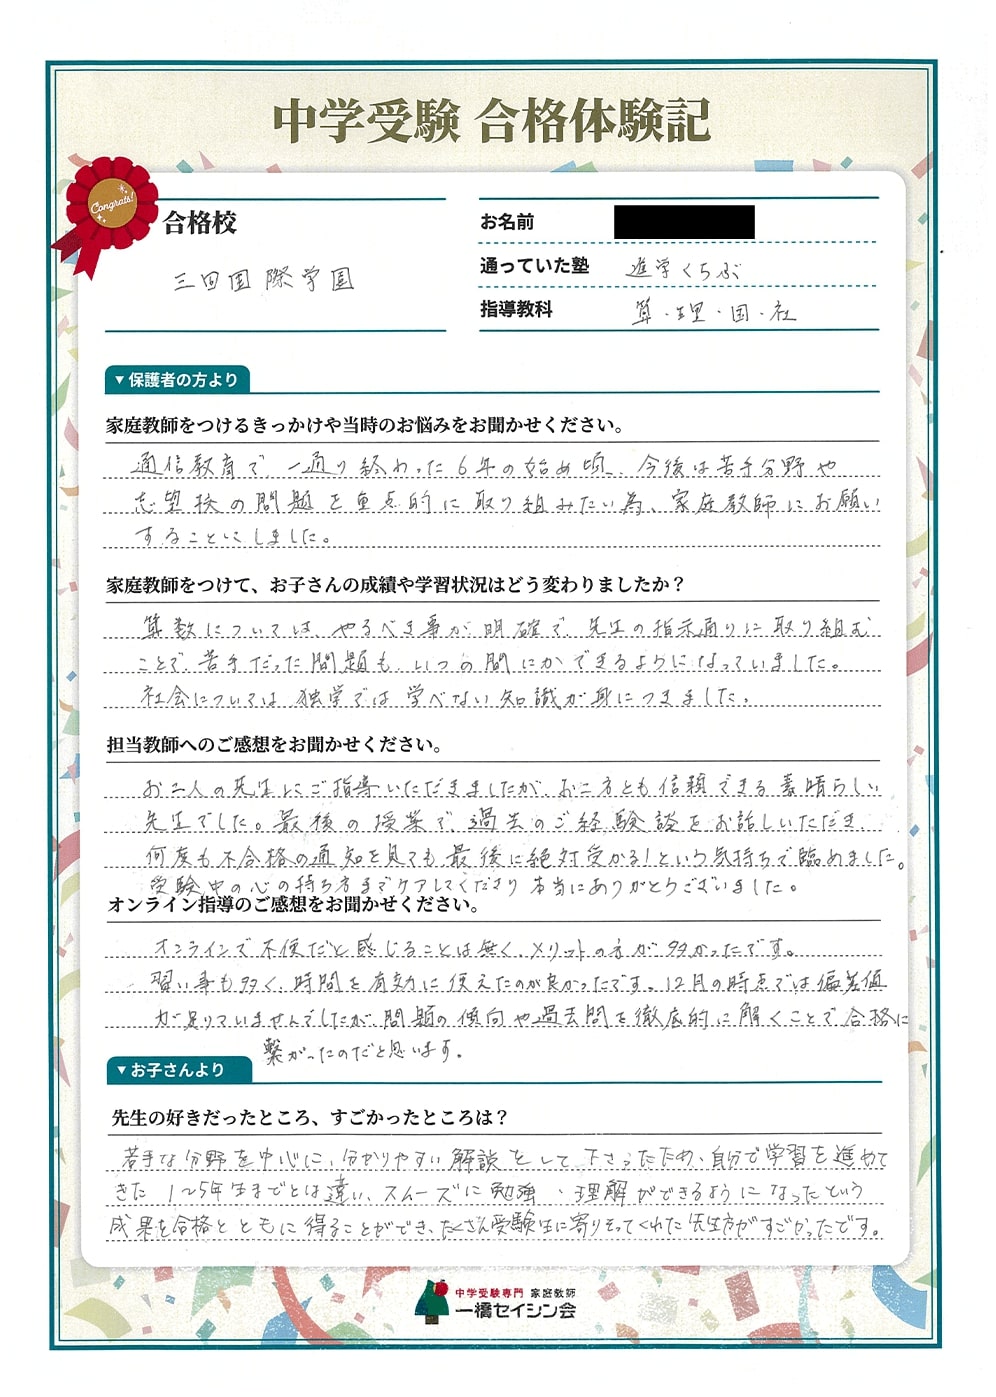 中学受験 合格体験記
Congrats!
合格校
三田国際学園
お名前
通っていた塾 進学くらぶ
指導教科 算・理・国・社
▼保護者の方より
家庭教師をつけるきっかけや当時のお悩みをお聞かせください。
通信教育で、一通り終わった6年の始め頃、今後は苦手分野や
志望校の問題を重点的に取り組みたい為、家庭教師にお願い
することにしました。
家庭教師をつけて、お子さんの成績や学習状況はどう変わりましたか？
算数については、やるべき事が明確で、先生の指示通りに取り組む
ことで、苦手だった問題も、いつの間にかできるようになっていました。
社会については独学では学べない知識が身につきました。
担当教師へのご感想をお聞かせください。
お二人の先生にご指導いただきましたが、お二方とも信頼できる素晴らしい
先生でした。最後の授業で、過去のご経験談をお話しいただき、
何度も不合格の通知を見ても最後に絶対受かる！という気持ちで臨めました。
受験中の心の持ち方までケアしてくださり本当にありがとうございました。
オンライン指導のご感想をお聞かせください。
オンラインで不便だと感じることは無く、メリットの方が多かったです。
習い事も多く、時間を有効に使えたのが良かったです。12月の時点では偏差値
が足りていませんでしたが、問題の傾向や過去問を徹底的に解くことで合格に
繋がったのだと思います。
▼お子さんより
先生の好きだったところ、すごかったところは？
苦手な分野を中心に、分かりやすい解説をして下さったため、自分で学習を進めて
きた1～5年生までとは違い、スムーズに勉強、理解ができるようになったという
成果を合格とともに得ることができ、たくさん受験生に寄りそってくれた先生方がすごかったです。
中学受験専門 家庭教師
一橋セイシン会